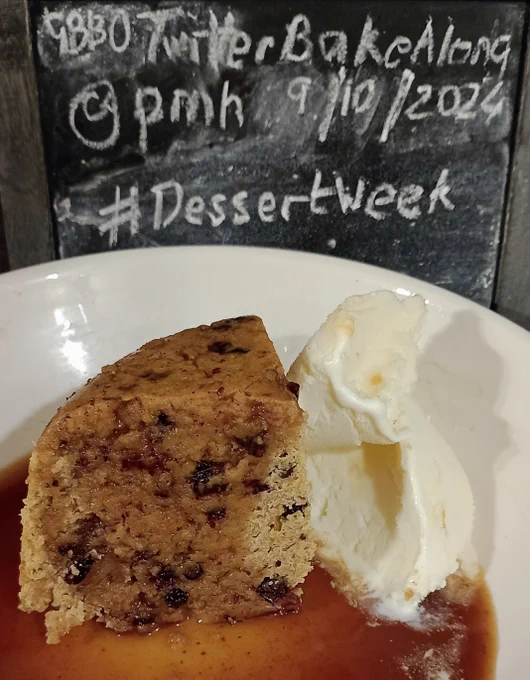 GBBO TwitterBakeAlong
@pmh 9/10/2024
#DessertWeek